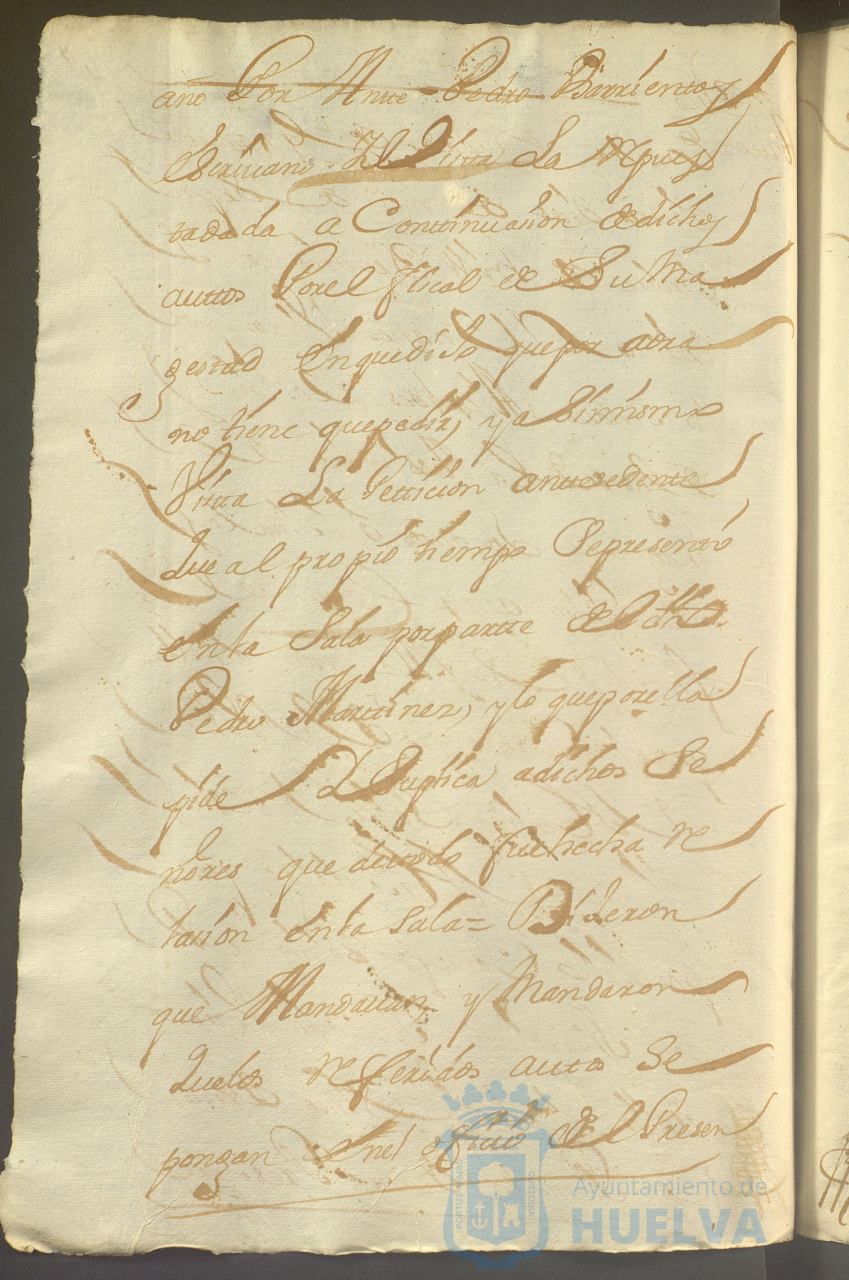 año Por Antte Pedro Barrientos
Escriuano Y Vista La Respues
ta dada a Continuasion de dichos
auttos Por el fiscal de Su Ma
gestad En que dijo que por aora
no tiene que pedir, y asimismo
Vista La Pettision anttesedente
Que al propio tiempo Represento
En la Sala por partte de el dho
Pedro Marttinez, y lo que por ella
pide Y Suplica a dichos Se
ñores que de todo fue hecha Re
lasion En la Sala = Dixeron
que Mandauan, y Mandaron
Que los Referidos autos Se
pongan En el ofisio de el Presen
Ayuntamiento de
HUELVA